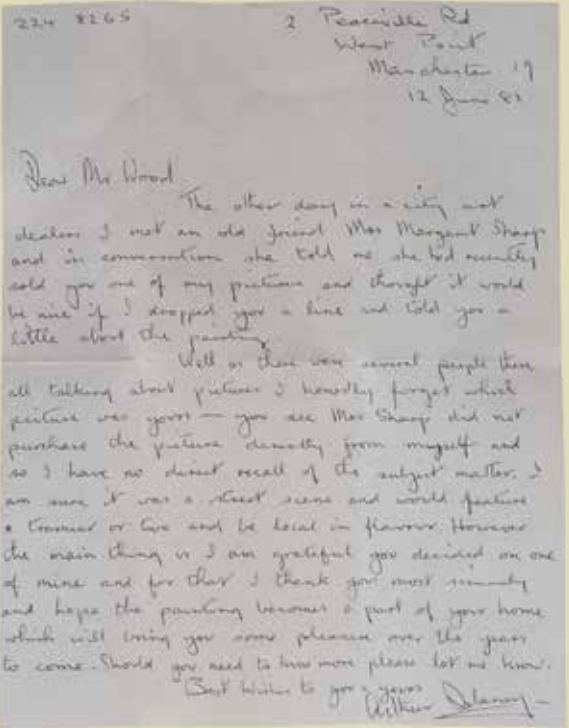 224 8265
2 Peaceville Rd
West Point
Manchester 19
12 June 82
Dear Mr. Wood
The other day in a city art
dealers I met an old friend Mrs Margaret Sharp
and in conversation she told me she had recently
sold you one of my pictures and thought it would
be nice if I dropped you a line and told you a
little about the painting.
Well as there were several people there
all talking about pictures I honestly forget which
picture was yours — you see Mrs Sharp did not
purchase the picture directly from myself and
so I have no direct recall of the subject matter. I
am sure it was a street scene and would feature
a tramcar or two and be local in flavour. However
the main thing is I am grateful you decided on one
of mine and for that I thank you most sincerely
and hope the painting becomes a part of your home
which will bring you some pleasure over the years
to come. Should you need to know more please let me know.
Best Wishes to you & yours
Arthur Delaney